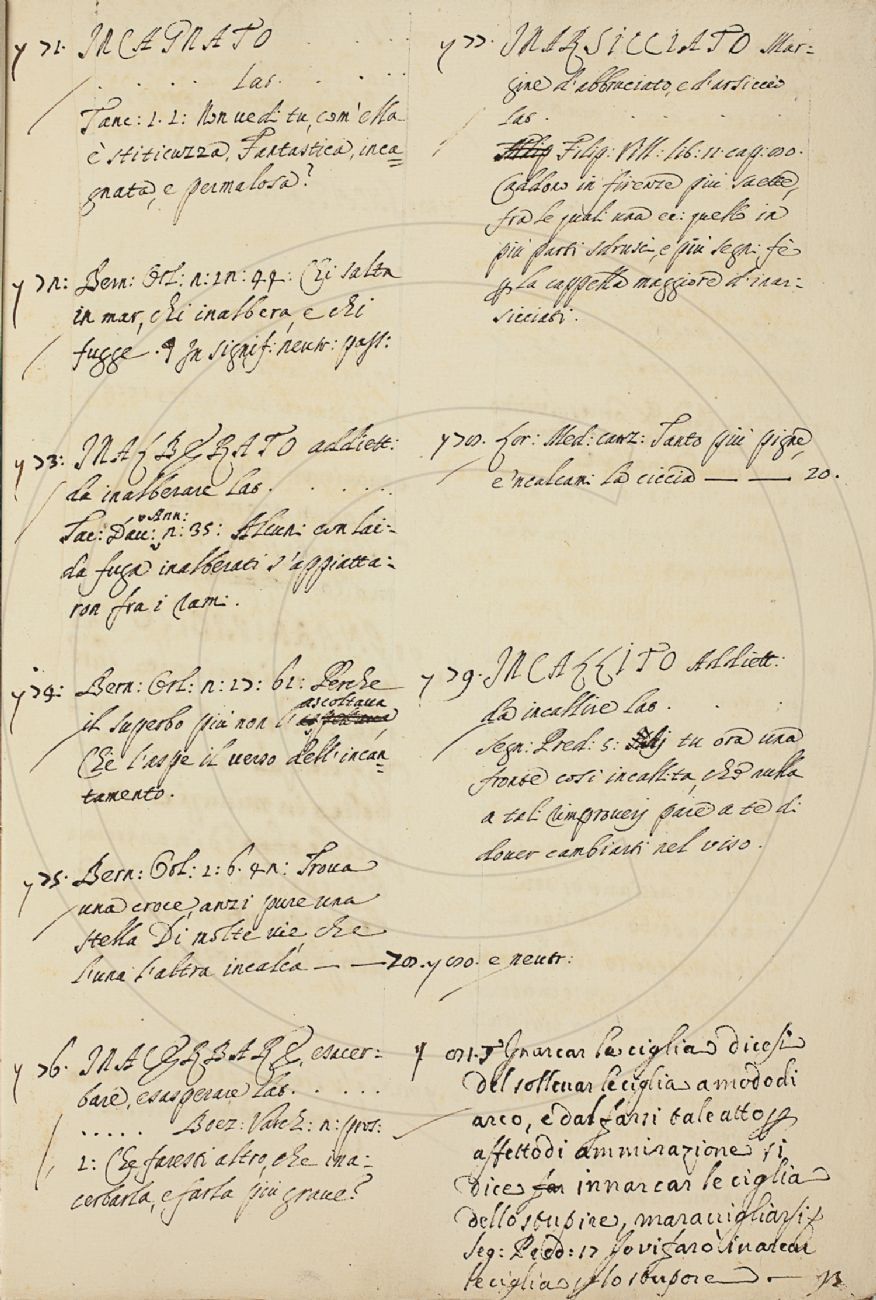 y 71. INCAGNATO
. . . . Las. . . . .
Tanc: 1. 1: Non vedi tu, com'ella
è stiticuzza, Fantastica, inca=
gnata, e permalosa?
y 72: Bern: Orl: 2: 12: 44: Chi salta
in mar, chi inalbera, e chi
fugge. ¶ In signif: neutr: pass:
y 73: INALBERATO addiett:
da inalberare Las. . . . . .
Tac: Dav: Ann: 2: 35: Alcuni con lai=
da fuga inalberati s'appiatta=
ron fra i rami.
y 74: Bern: Orl: 2: 17: 61: Perche
il superbo più non l'ascoltava
Che l'aspe il verso dell'incan=
tamento.
y 75. Bern: Orl: 1: 6. 42: Trova
una croce, anzi pure una
stella Di molte vie, che
l'una l'altra incalca — —
y 76. INACERBARE, esacer=
bare, esasperare Las. . . . .
. . . . . Boez: Varch: 2: pros:
1: Che faresti altro, che ina=
cerbarla, e farla più grave?
y 77. INARSICCIATO Mar=
gine d'abbruciato, e d'arsiccio
Las. . . . .
Filip: Vill: lib: 11: cap: 80.
Caddono in firenze più saette,
fra le quali una ec: quello in
più parti sdruscì, e più segni fè
p la cappella maggiore d'inar=
sicciati.
y 78. Lor: Med: canz: Tanto più pigne,
e 'ncalcani la ciccia — — 20.
y 79. INCALLITO Addiett:
da incallire Las. . . :
Segn: Pred: 5: tu ora una
fronte così incallita, che nulla
a tali rimproverj paie a te di
dover cambiarti nel viso.
78. y 80. e neutr:
y 81. Inarcar le ciglia dicesi
del sollevar le ciglia a modo di
arco, e dal farsi tale atto p
affetto di ammirazione si
dice innarcar le ciglia
dello stupire, maravigliarsi
Seg: Pred: 17 Io vi farò inarcar
le ciglia p lo stupore —